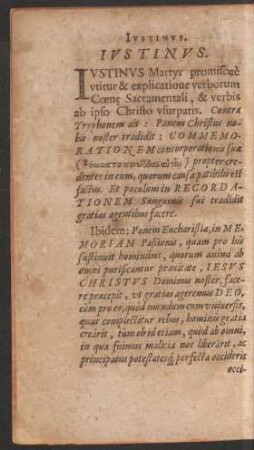 IVSTINVS.
IVSTINVS.
IVSTINVS Martyr promiscuè
vtitur & explicatione verborum
Cœnę Sacramentali, & verbis
ab ipso Christo vsurpatis. Contra
Tryphonem ait: Panem Christus no-
bis noster tradidit: COMMEMO-
RATIONEM concorporationis suæ
propter cre-
dentes in eum, quorum causa patibilis est
factus. Et poculum in RECORDA-
TIONEM Sanguinis sui tradidit
gratias agentibus facere.
Ibidem: Panem Eucharistiæ, in ME-
MORIAM Passionis, quam pro his
sustinuit hominibus, quorum animi ab
omni purificantur prauitate, IESVS
CHRISTVS Dominus noster, face-
re præcepit, vt gratias ageremus DEO,
cùm pro eo, quòd mundum cum vniuersis,
quæ complectitur rebus, hominis gratia
creârit, tùm ob id etiam, quòd ab omni,
in qua fuimus malicia nos liberârit, ac
principatus potestatesq́; perfecta occiderit
occi-